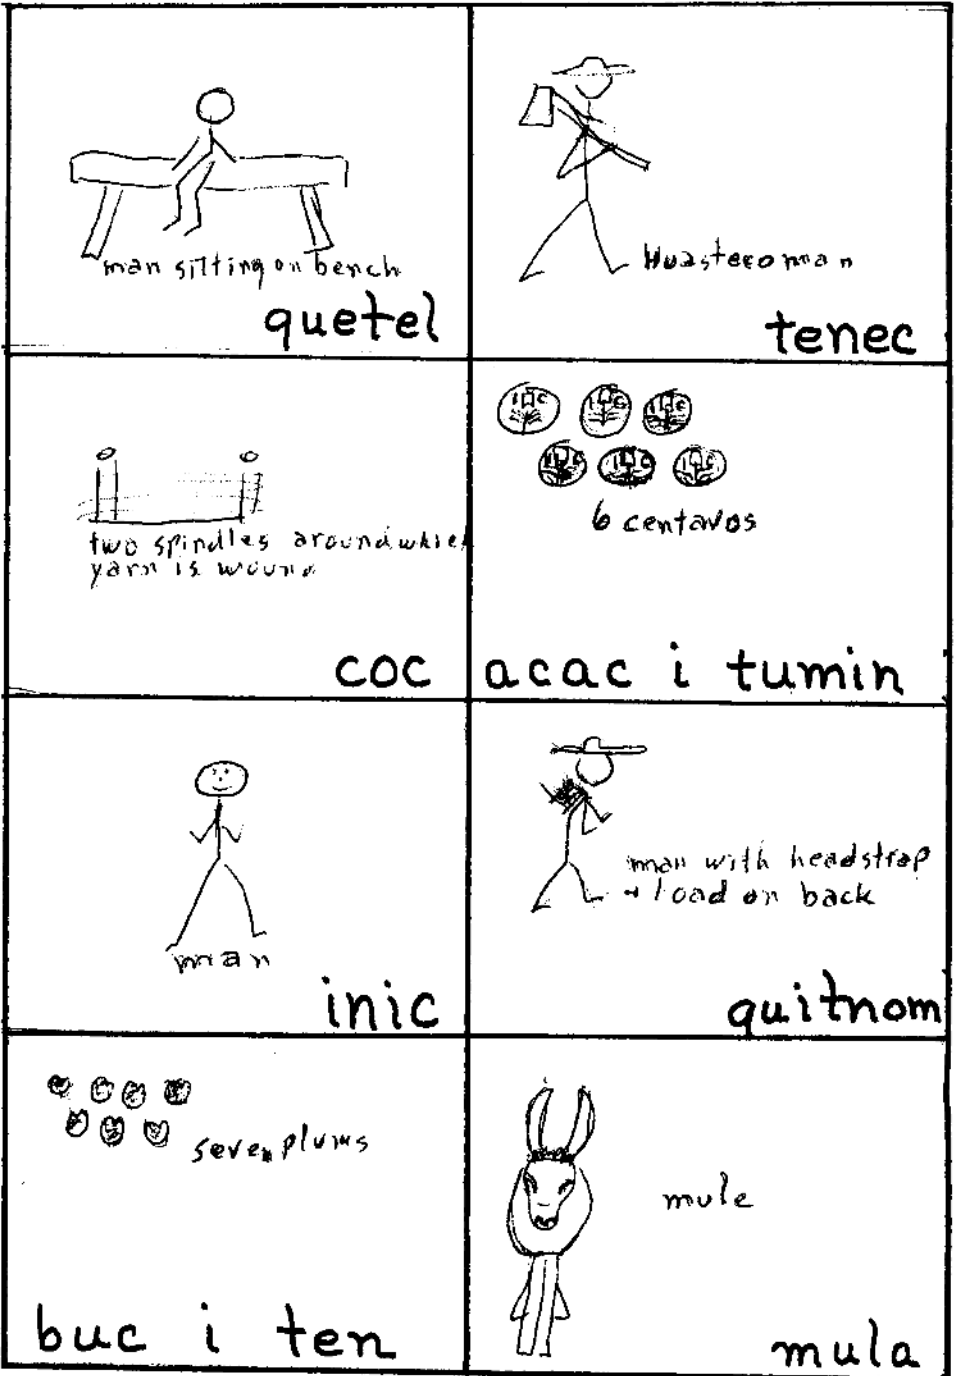 man sitting on bench
quetel
Huasteco man
tenec
two spindles around which
yarn is wound
coc
6 centavos
acac i tumin
man
inic
man with headstrap
+ load on back
quitnom
seven plums
buc i ten
mule
mula